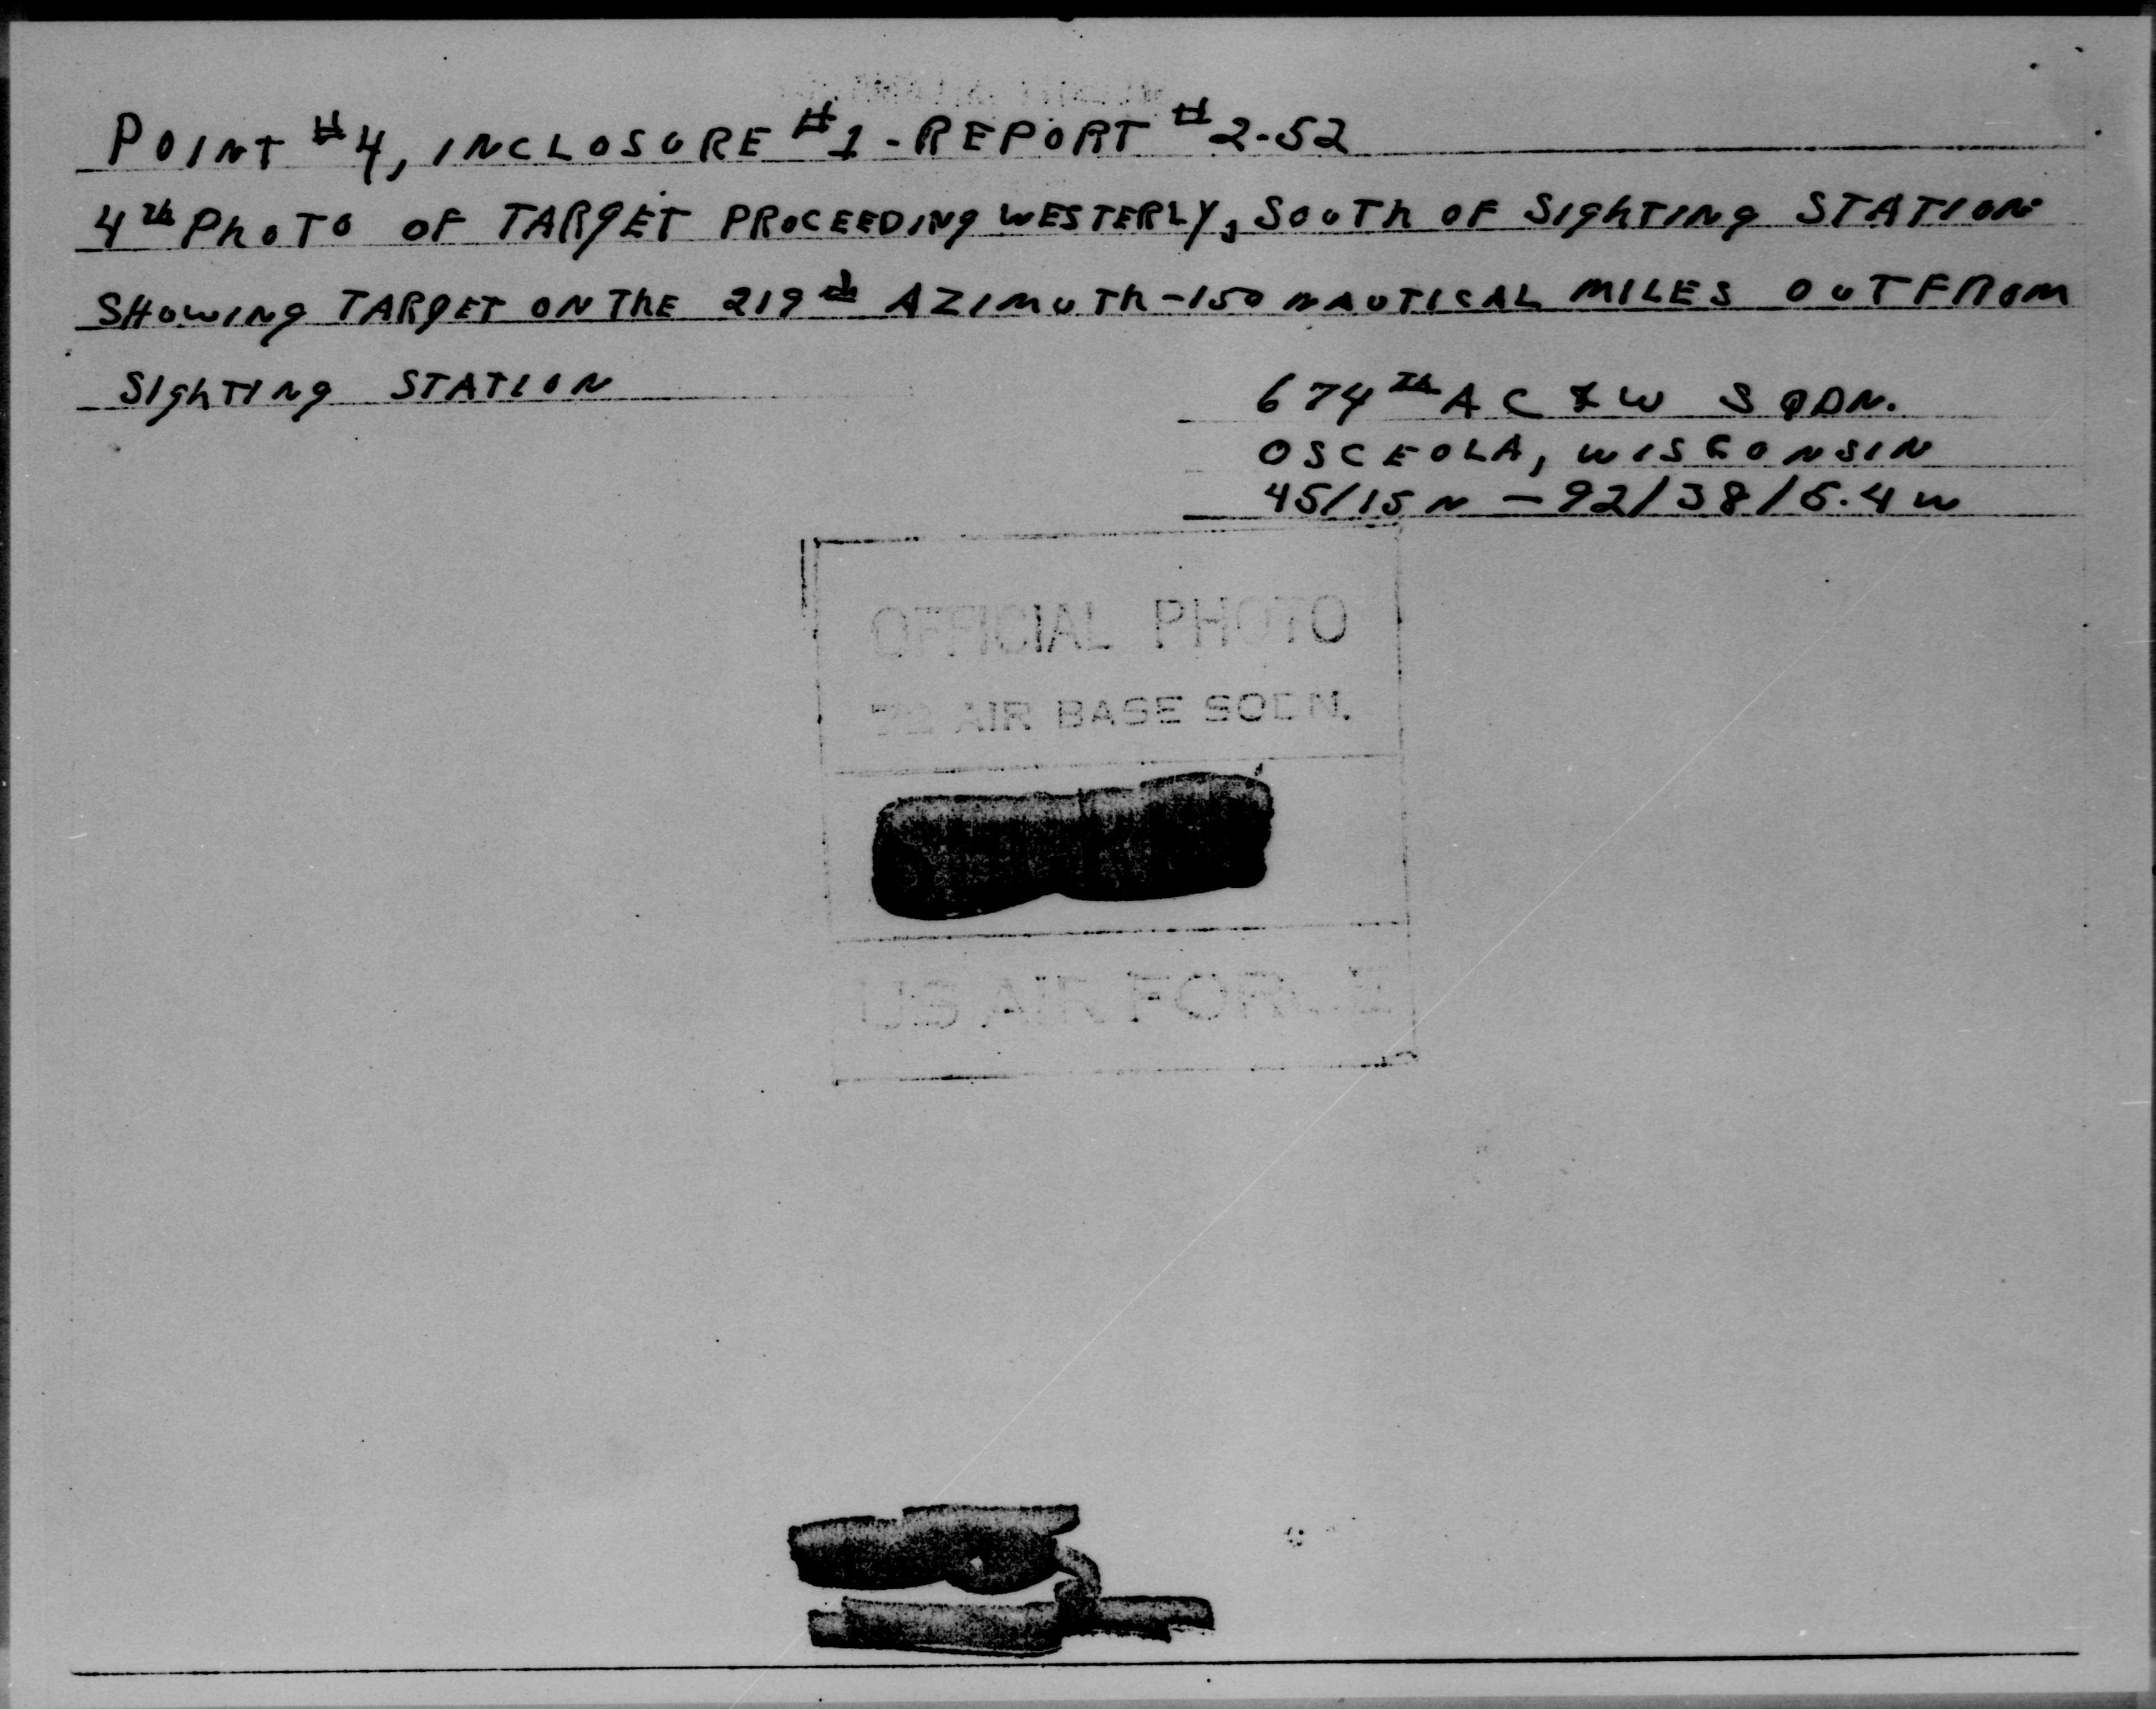 POINT #4, INCLOSURE #1 - REPORT #2-52
4th PhoTo OF TARgET PROCEEDINg WESTERLY, SOUTh OF SIghTINg STATION
SHOWINg TARgET ON ThE 219th AZIMUTh - 150 NAUTICAL MILES OUT FROM
SIghTINg STATION
674th AC & W SQDN.
OSCEOLA, WISCONSIN
45/15 N - 92/38/6.4 W
OFFICIAL PHOTO
AIR BASE SQDN.
US AIR FORCE